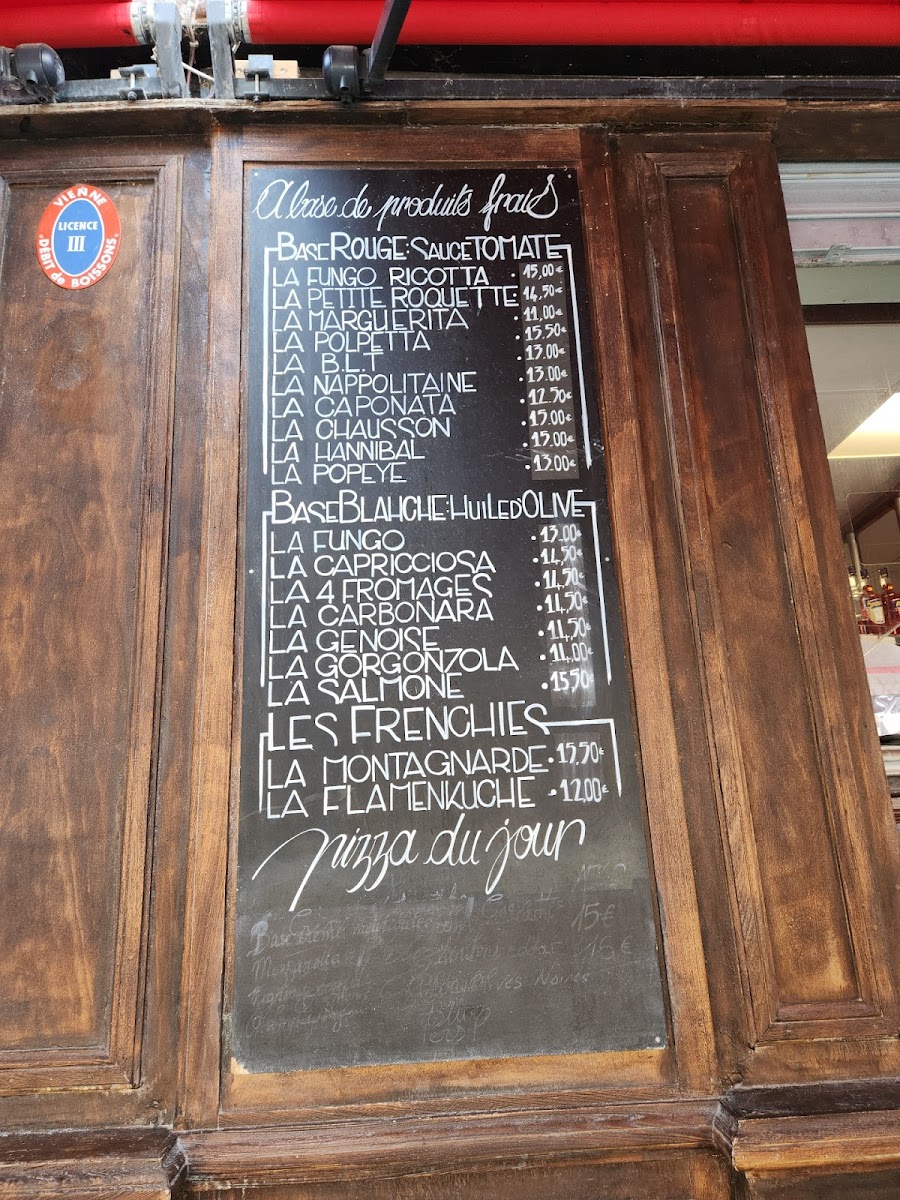 VIENNE
LICENCE
III
DÉBIT de BOISSONS
A base de produits frais
BASE ROUGE: SAUCE TOMATE
LA FUNGO RICOTTA . 15,00€
LA PETITE ROQUETTE 14,50€
LA MARGUERITA . 11,00€
LA POLPETTA . 15.50€
LA B.L.T . 13.00€
LA NAPPOLITAINE . 13.00€
LA CAPONATA . 12.50€
LA CHAUSSON . 15.00€
LA HANNIBAL . 15.00€
LA POPEYE . 13.00€
BASE BLAHCHE: HUILE D'OLIVE
LA FUNGO . 13.00€
LA CAPRICCIOSA . 14,50€
LA 4 FROMAGES . 14,50€
LA CARBONARA . 14,50€
LA GENOISE . 11,50€
LA GORGONZOLA . 14,00€
LA SALMONE . 15,50€
LES FRENCHIES
LA MONTAGNARDE . 15,50€
LA FLAMENKUCHE . 12,00€
pizza du jour
Base crème
15€
15€
Olives Noires